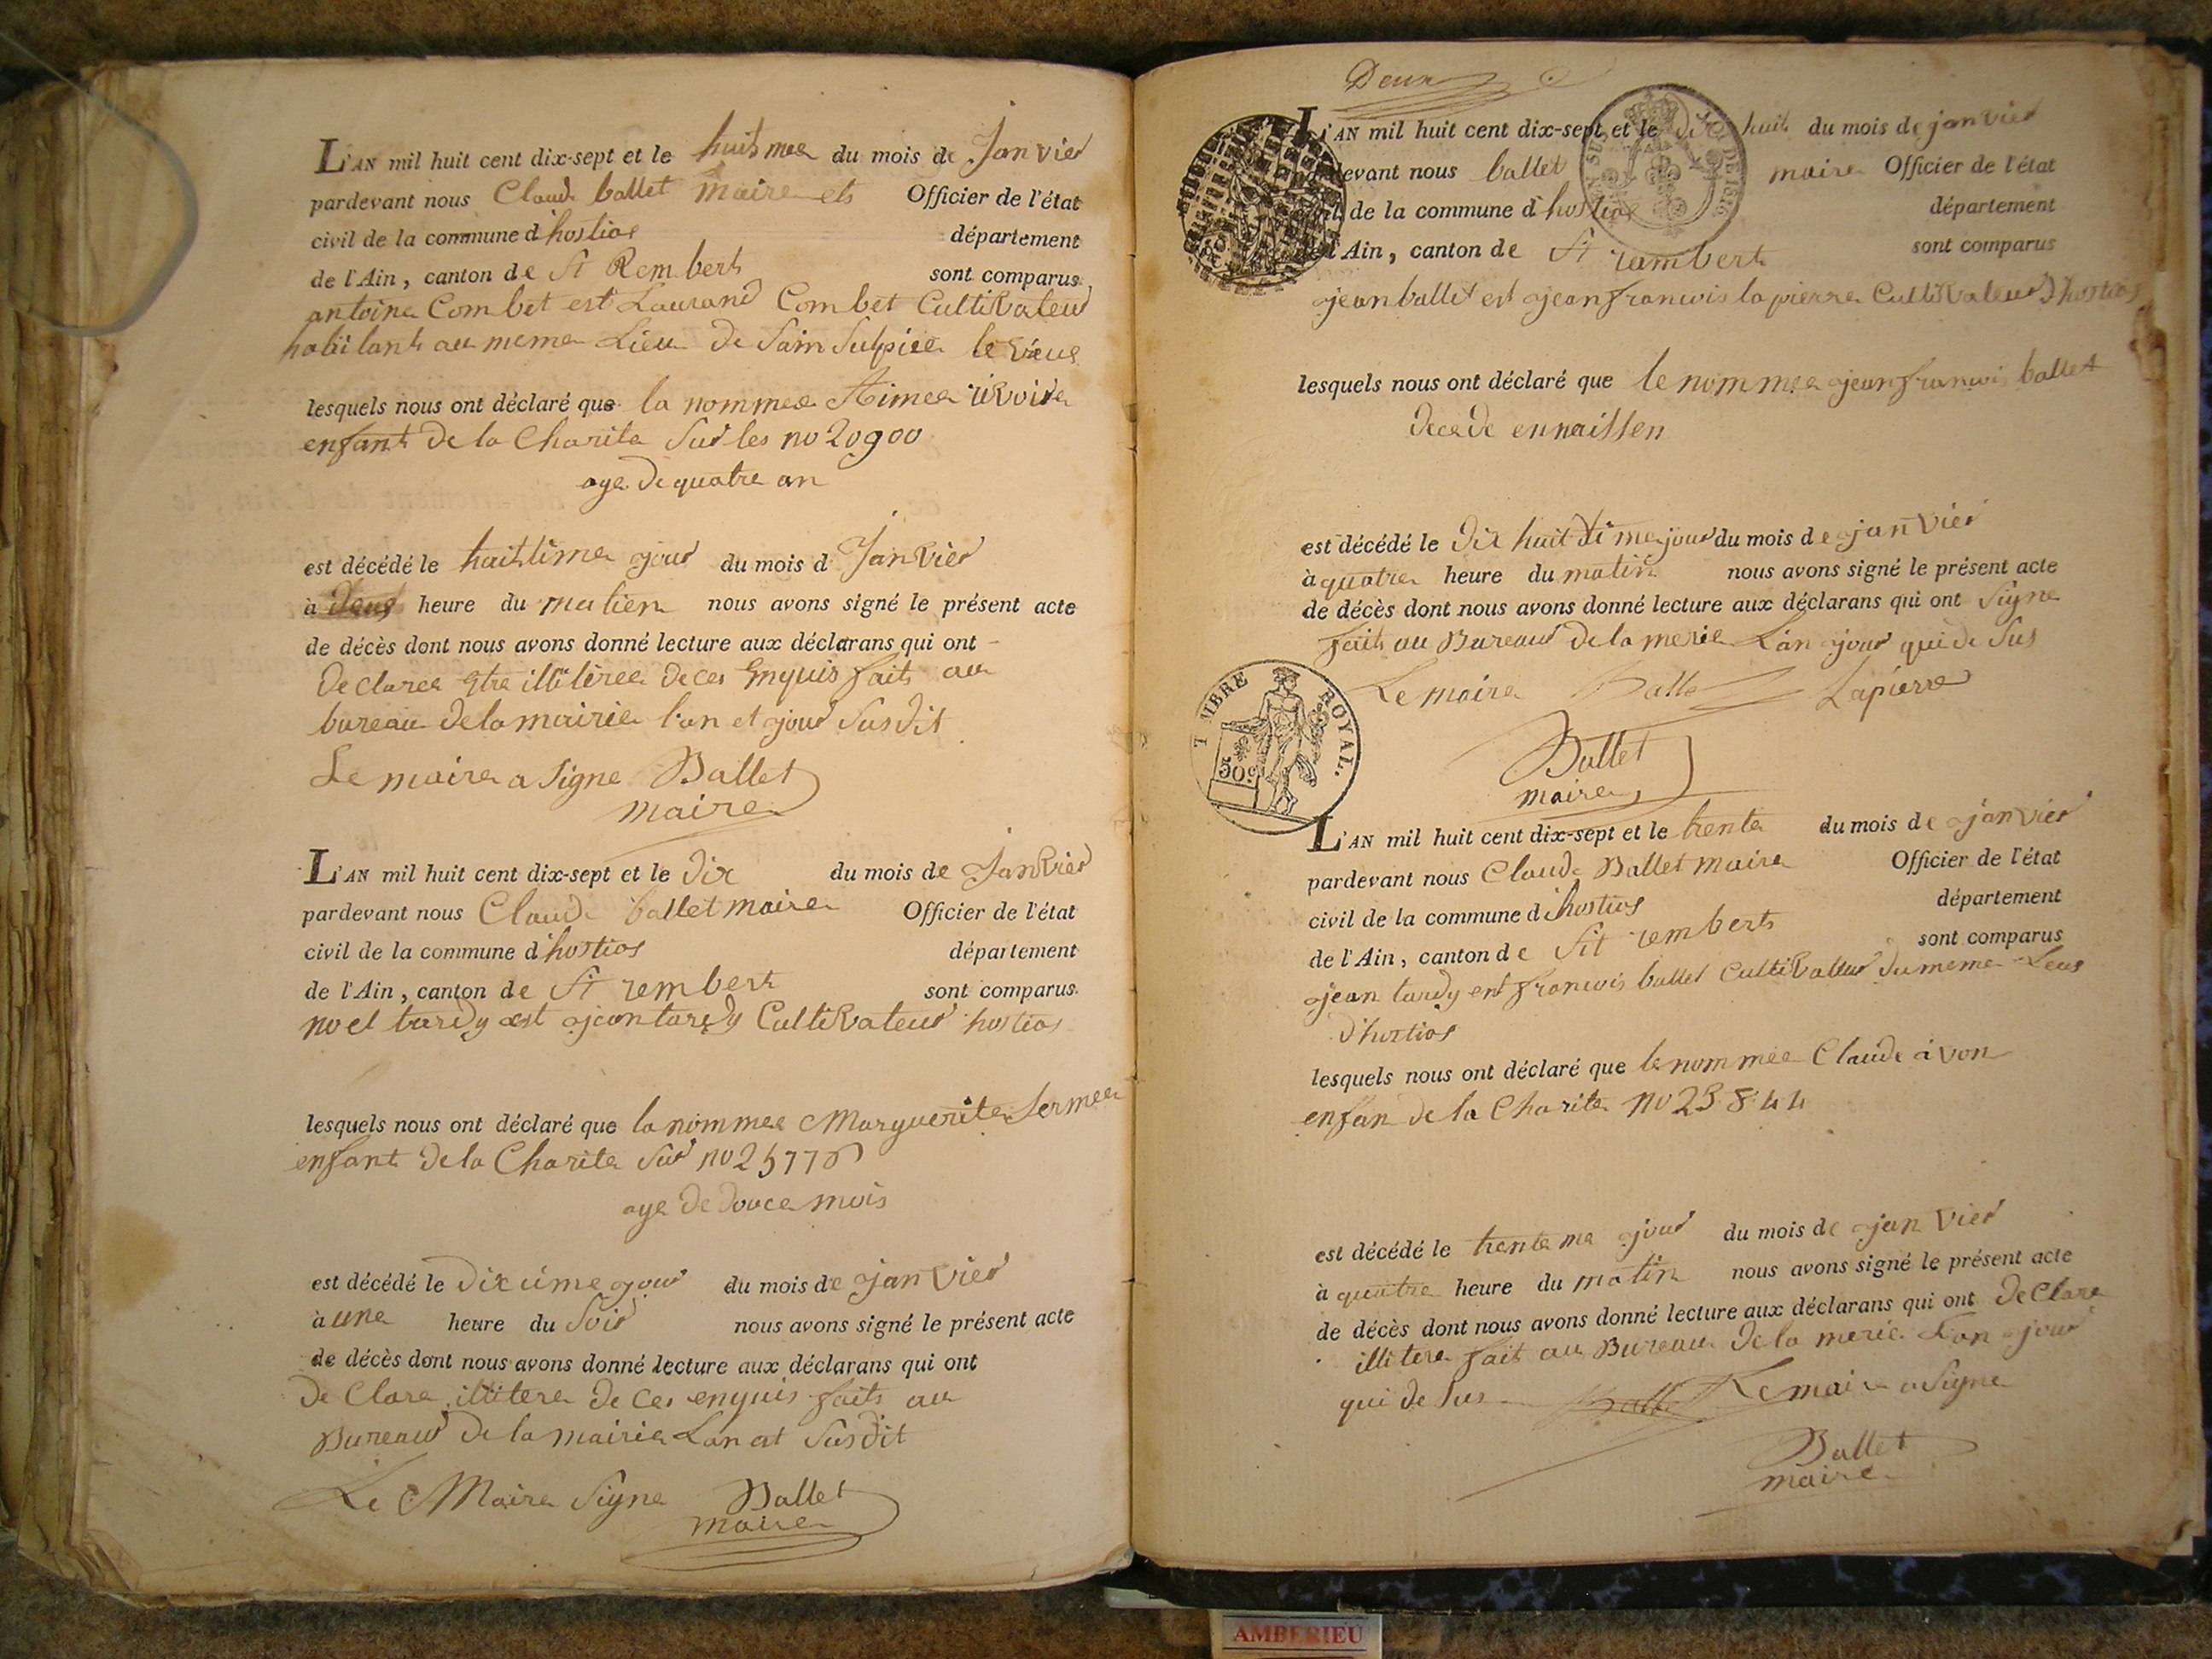 L'AN mil huit cent dix-sept et le huitmee du mois de Janvier
pardevant nous Claude ballet maire et Officier de l'état
civil de la commune d'hostias département
de l'Ain, canton de St Rembert sont comparus
antoine Combet est Laurand Combet Cultivateur
habitant au meme Lieu De Sain Sulpice le vieux
lesquels nous ont déclaré que la nommee Aimee rivoire
enfant de la Charite Sur les no 20900
age De quatre an
est décédé le huittime jour du mois d Janvier
à Deux heure du matien nous avons signé le présent acte
de décès dont nous avons donné lecture aux déclarans qui ont
De Claree etre illiteree de ces enquis fait au
bureau de la mairie l'an et jour Susdit
Le maire a Signe Ballet
maire
L'AN mil huit cent dix-sept et le Dix du mois de Janvier
pardevant nous Claude ballet maire Officier de l'état
civil de la commune d'hostias département
de l'Ain, canton de St rembert sont comparus
noel tardy est jean tardy Cultivateur hostias
lesquels nous ont déclaré que la nommee Marguerite Sermee
enfant de la Charite Sur no 25776
age De douce mois
est décédé le Dixieme jour du mois de janvier
à une heure du Soir nous avons signé le présent acte
de décès dont nous avons donné lecture aux déclarans qui ont
De Clare illitere de ces enquis fait au
Bureau De la mairie Lan et Susdit
Le Maire Signe Ballet
maire
Deux
L'AN mil huit cent dix-sept et le dix huit du mois de janvier
pardevant nous ballet maire Officier de l'état
civil de la commune d'hostias département
de l'Ain, canton de St rambert sont comparus
jean ballet est jean francois lapierre Cultivateur D'hostias
lesquels nous ont déclaré que le nommee jean francois ballet
decede en naissen
est décédé le Dix huittime jour du mois de janvier
à quatre heure du matin nous avons signé le présent acte
de décès dont nous avons donné lecture aux déclarans qui ont Signe
fait au Bureau De la merie L'an jour qui de Sus
Le maire Balle Lapierre
TIMBRE ROYAL.
50c
Ballet
maire
L'AN mil huit cent dix-sept et le trente du mois de janvier
pardevant nous Claude Ballet maire Officier de l'état
civil de la commune d'hostias département
de l'Ain, canton de St rembert sont comparus
jean tardy est francois ballet Cultivateur du meme Leus
d'hostias
lesquels nous ont déclaré que le nommee Claude avon
enfan de la Charite no 25844
est décédé le trenteme jour du mois de janvier
à quatre heure du matin nous avons signé le présent acte
de décès dont nous avons donné lecture aux déclarans qui ont De Clare
illitere fait au Bureau De la merie L'an jour
qui de Sus Ballet Le maire a Signe
Ballet
maire
AMBERIEU